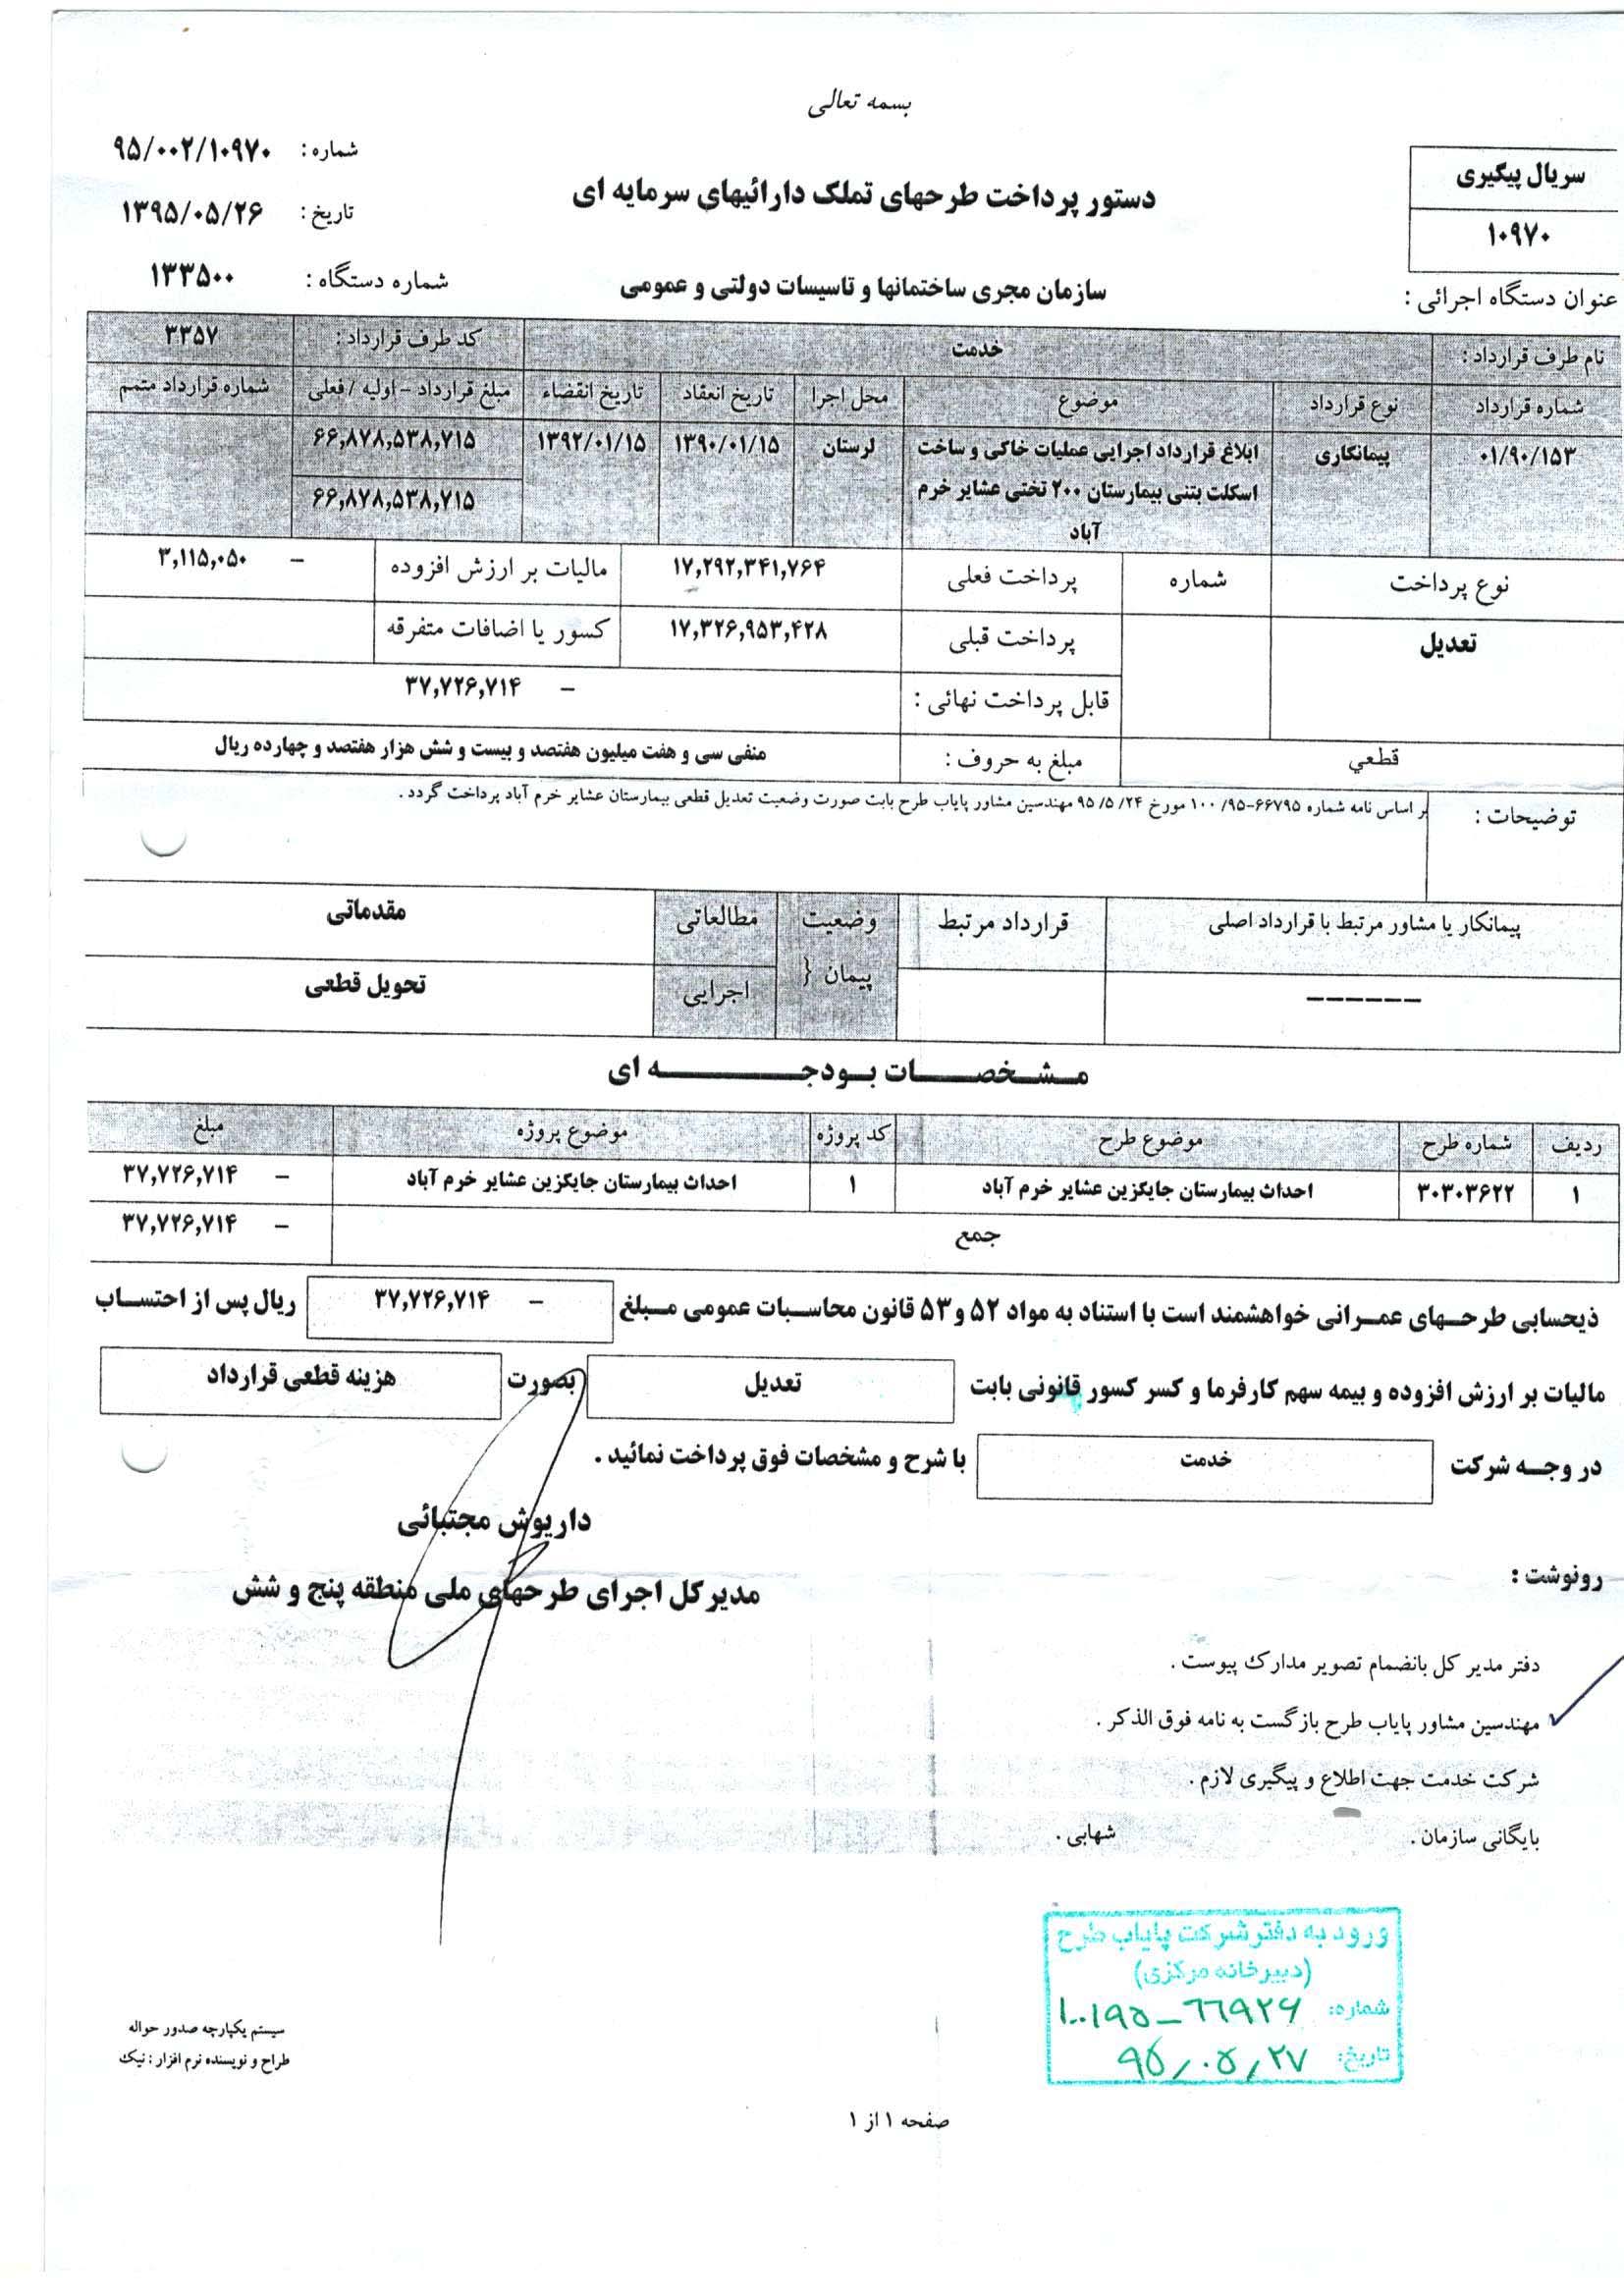 بسمه تعالی
سریال پیگیری
۱۰۹۷۰
دستور پرداخت طرحهای تملک دارائیهای سرمایه ای
شماره : ۹۵/۰۰۲/۱۰۹۷۰
تاریخ : ۱۳۹۵/۰۵/۲۶
عنوان دستگاه اجرائی : سازمان مجری ساختمانها و تاسیسات دولتی و عمومی شماره دستگاه : ۱۳۳۵۰۰
نام طرف قرارداد : خدمت کد طرف قرارداد : ۳۳۵۷
شماره قرارداد نوع قرارداد موضوع محل اجرا تاریخ انعقاد تاریخ انقضاء مبلغ قرارداد - اولیه / فعلی شماره قرارداد متمم
۰۱/۹۰/۱۵۳ پیمانکاری ابلاغ قرارداد اجرایی عملیات خاکی و ساخت لرستان ۱۳۹۰/۰۱/۱۵ ۱۳۹۲/۰۱/۱۵ ۶۶,۸۷۸,۵۳۸,۷۱۵
اسکلت بتنی بیمارستان ۲۰۰ تختی عشایر خرم ۶۶,۸۷۸,۵۳۸,۷۱۵
آباد
نوع پرداخت شماره پرداخت فعلی ۱۷,۲۹۲,۳۴۱,۷۶۴ مالیات بر ارزش افزوده - ۳,۱۱۵,۰۵۰
تعدیل پرداخت قبلی ۱۷,۳۲۶,۹۵۳,۴۲۸ کسور یا اضافات متفرقه
قابل پرداخت نهائی : - ۳۷,۷۲۶,۷۱۴
قطعي مبلغ به حروف : منفی سی و هفت میلیون هفتصد و بیست و شش هزار هفتصد و چهارده ریال
توضیحات : بر اساس نامه شماره ۶۶۷۹۵-۹۵/ ۱۰۰ مورخ ۲۴/ ۵/ ۹۵ مهندسین مشاور پایاب طرح بابت صورت وضعیت تعدیل قطعی بیمارستان عشایر خرم آباد پرداخت گردد .
پیمانکار یا مشاور مرتبط با قرارداد اصلی قرارداد مرتبط وضعیت مطالعاتی مقدماتی
------ پیمان { اجرایی تحویل قطعی
مشخصات بودجه ای
ردیف شماره طرح موضوع طرح کد پروژه موضوع پروژه مبلغ
۱ ۳۰۳۰۳۶۲۲ احداث بیمارستان جایگزین عشایر خرم آباد ۱ احداث بیمارستان جایگزین عشایر خرم آباد - ۳۷,۷۲۶,۷۱۴
جمع - ۳۷,۷۲۶,۷۱۴
ذیحسابی طرحهای عمرانی خواهشمند است با استناد به مواد ۵۲ و ۵۳ قانون محاسبات عمومی مبلغ - ۳۷,۷۲۶,۷۱۴ ریال پس از احتساب
مالیات بر ارزش افزوده و بیمه سهم کارفرما و کسر کسور قانونی بابت تعدیل بصورت هزینه قطعی قرارداد
در وجه شرکت خدمت با شرح و مشخصات فوق پرداخت نمائید .
داریوش مجتبائی
مدیرکل اجرای طرحهای ملی منطقه پنج و شش
رونوشت :
دفتر مدیر کل بانضمام تصویر مدارک پیوست .
مهندسین مشاور پایاب طرح بازگست به نامه فوق الذکر .
شرکت خدمت جهت اطلاع و پیگیری لازم .
بایگانی سازمان . شهابی .
ورود به دفتر شرکت پایاب طرح
(دبیرخانه مرکزی)
شماره: ۱۰۰/۹۵-۶۶۹۲۶
تاریخ: ۹۵/۰۵/۲۷
سیستم یکپارچه صدور حواله
طراح و نویسنده نرم افزار : نیک
صفحه ۱ از ۱